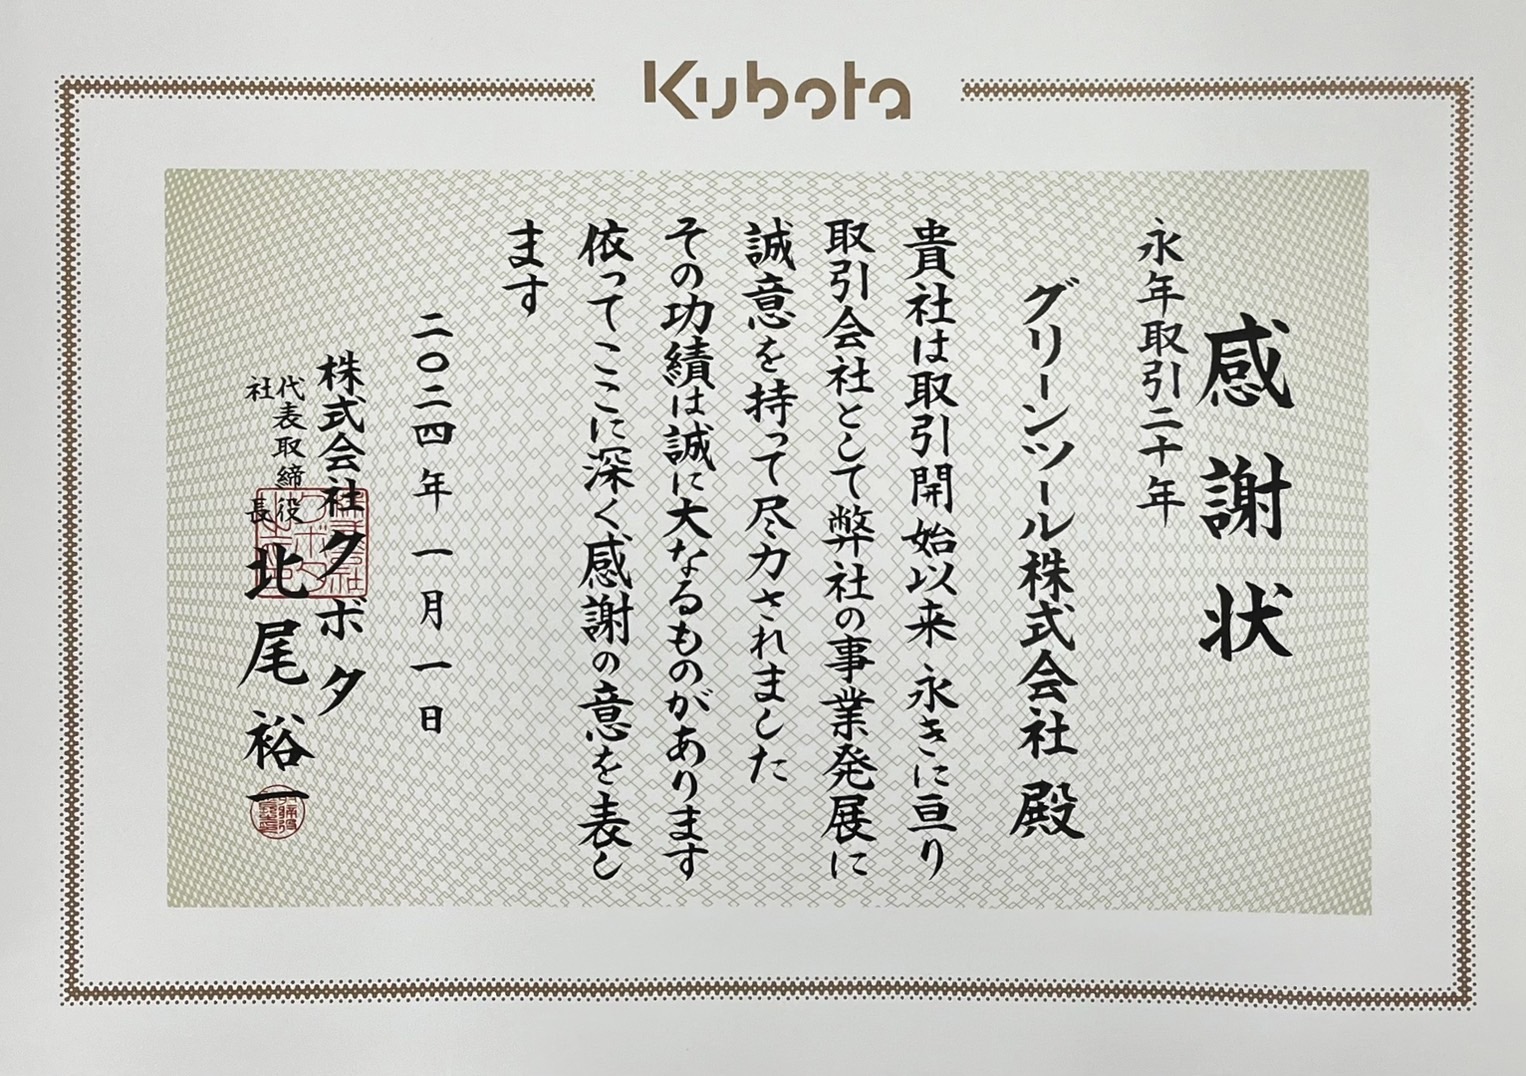 Kubota
感謝状
永年取引二十年
グリーンツール株式会社 殿
貴社は取引開始以来 永きに亘り
取引会社として弊社の事業発展に
誠意を持って尽力されました
その功績は誠に大なるものがあります
依ってここに深く感謝の意を表し
ます
二〇二四年 一月 一日
株式会社クボタ
代表取締役
社長
北尾裕一